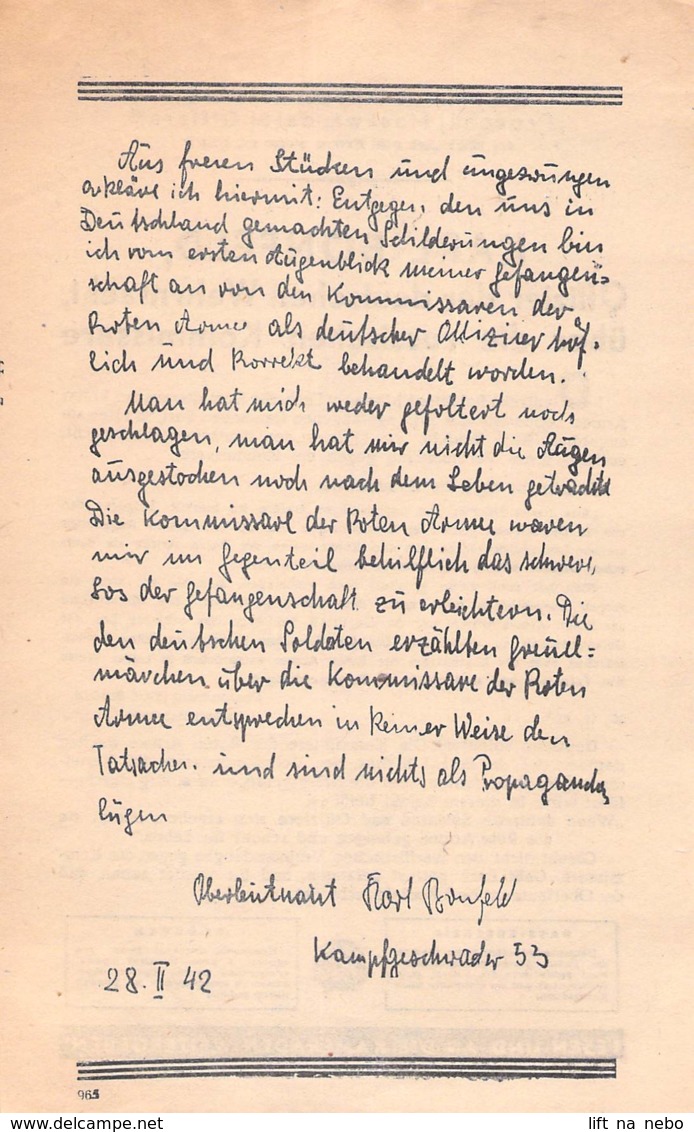 Aus freien Stücken und ungezwungen
erkläre ich hiermit: Entgegen den uns in
Deutschland gemachten Schilderungen bin
ich vom ersten Augenblick meiner Gefangen=
schaft an von den Kommissaren der
Roten Armee als deutscher Offizier höf-
lich und korrekt behandelt worden.
Man hat mich weder gefoltert noch
geschlagen, man hat mir nicht die Augen
ausgestochen noch nach dem Leben getrachtet
Die Kommissare der Roten Armee waren
mir im Gegenteil behilflich das schwere
Los der Gefangenschaft zu erleichtern. Die
den deutschen Soldaten erzählten Greuel=
märchen über die Kommissare der Roten
Armee entsprechen in keiner Weise den
Tatsachen und sind nichts als Propaganda
lügen
Oberleutnant Karl
Kampfgeschwader 53
28. II 42
965
lift na nebo